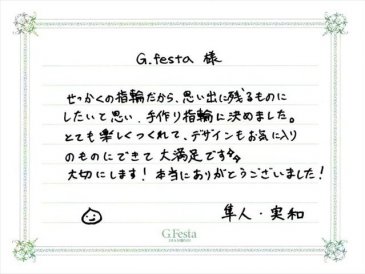 G.festa 様
せっかくの指輪だから、思い出に残るものに
したいと思い、手作り指輪に決めました。
とても楽しくつくれて、デザインもお気に入り
のものにできて大満足です☆☆
大切にします！本当にありがとうございました！
隼人・実和
G.Festa